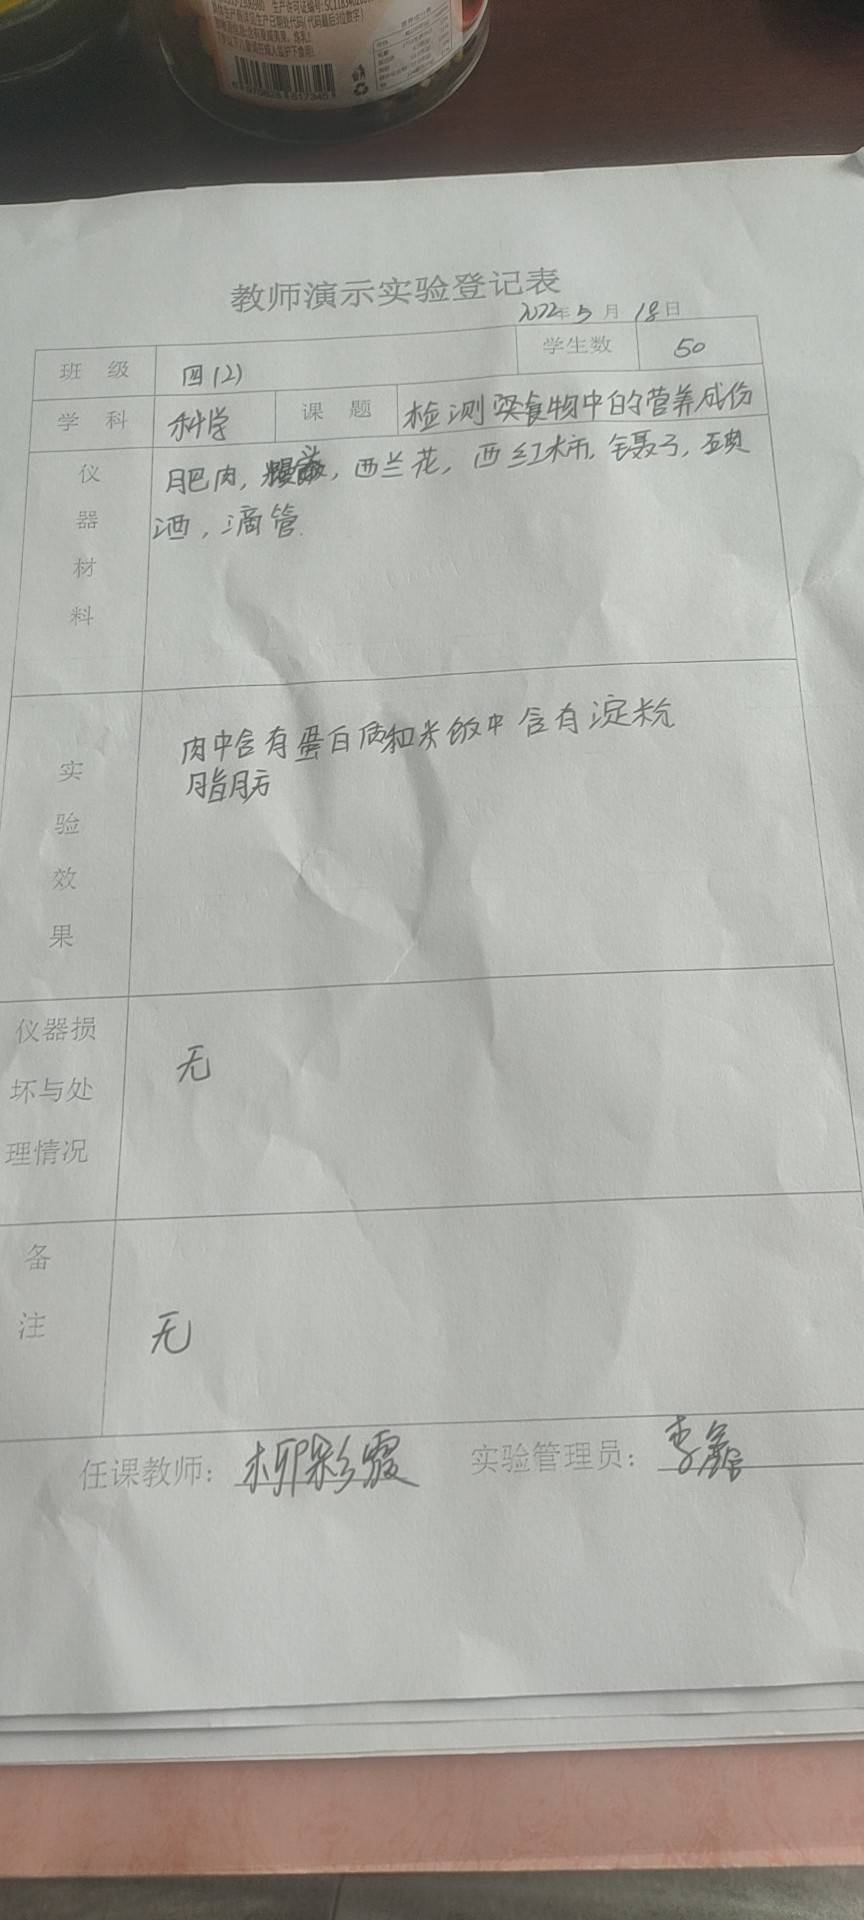 教师演示实验登记表
2022年5月18日
班 级 四(2) 学生数 50
学 科 科学 课 题 检测食物中的营养成份
仪器材料 肥肉, 馒头, 西兰花, 西红柿, 镊子, 碘
酒, 滴管.
实验效果 肉中含有蛋白质和 米饭中含有淀粉
脂肪
仪器损坏与处理情况 无
备注 无
任课教师: 柳彩霞 实验管理员: 李